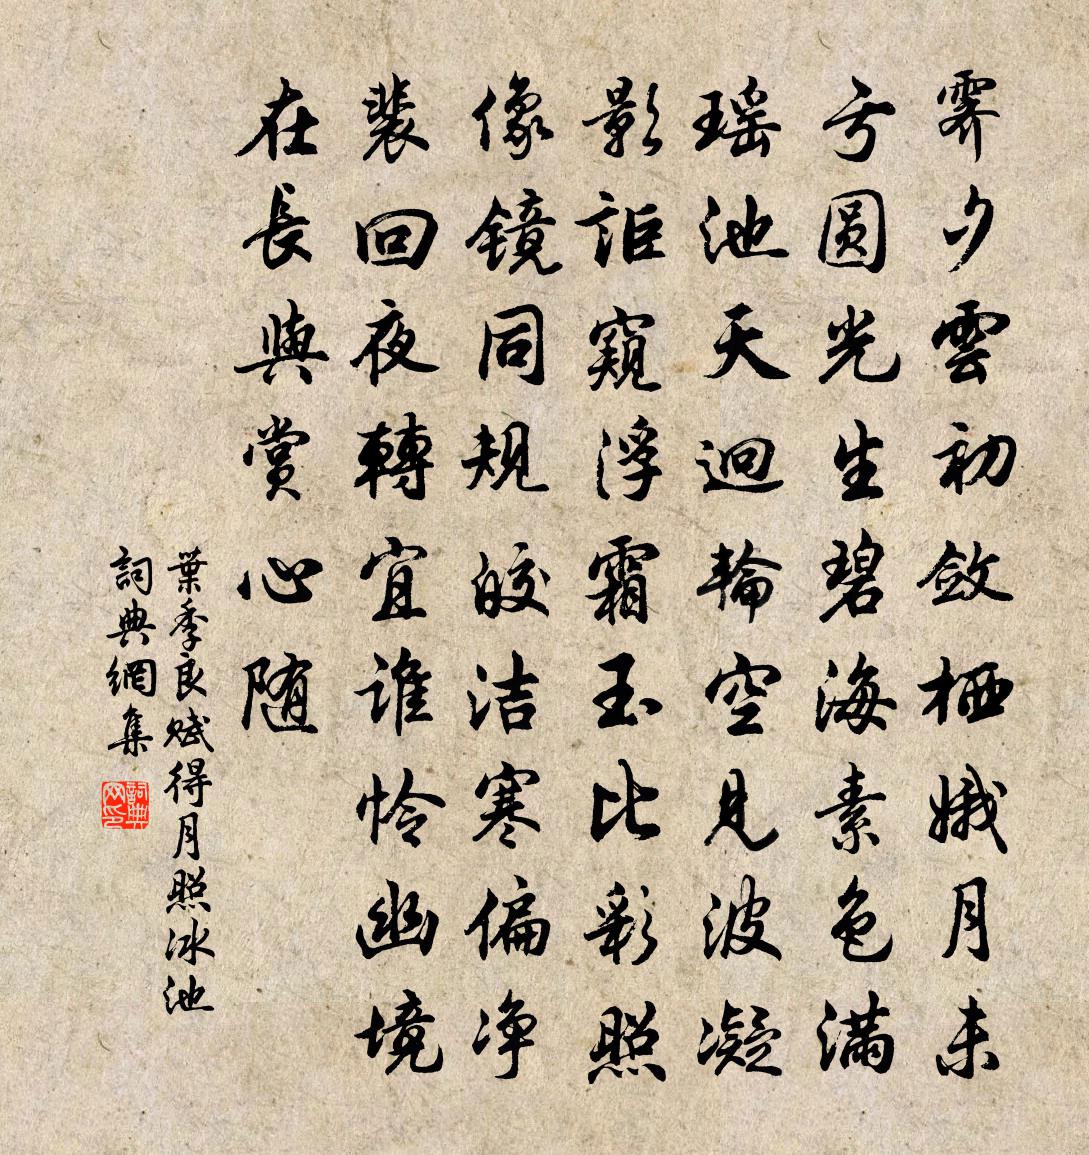 霽夕雲初斂栖娥月未
亏圆光生碧海素色滿
瑶池天迥輪空見波凝
影詎窺浮霜玉比彩照
像镜同规皎洁寒偏净
裴回夜轉宜谁怜幽境
在長與賞心随
葉季良赋得月照冰池
詞典網集
詞典网印